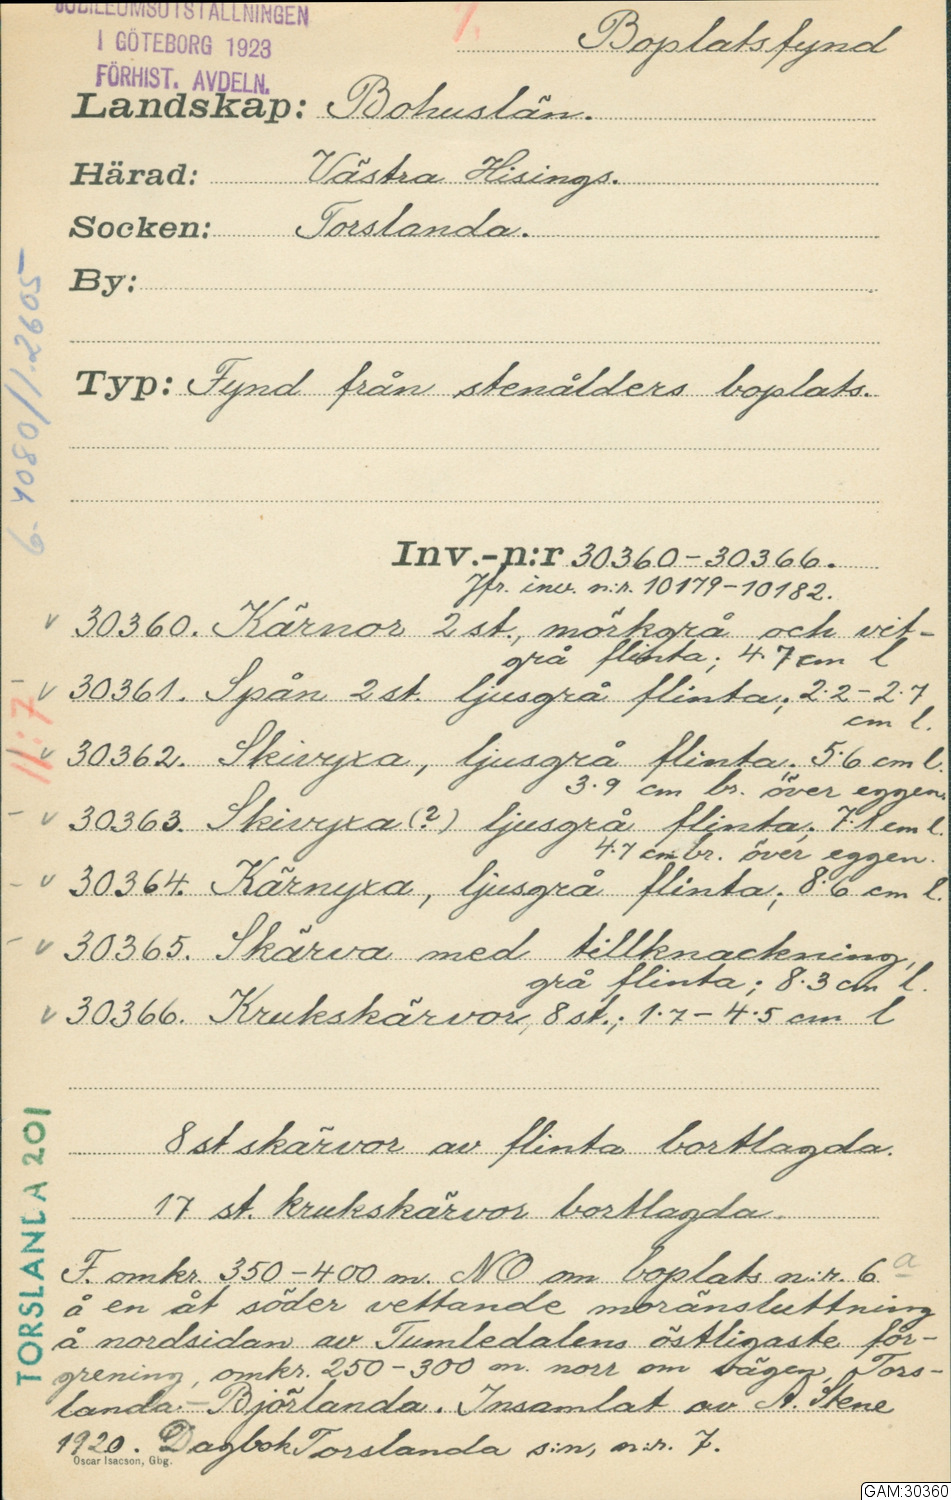 JUBILEUMSUTSTÄLLNINGEN
I GÖTEBORG 1923
FÖRHIST. AVDELN.
7.
Boplatsfynd
Landskap: Bohuslän.
Härad: Västra Hisings.
Socken: Torslanda.
By:
Typ: Fynd från stenålders boplats.
Inv.-n:r 30360-30366.
Jfr. inv. n:r. 10179-10182.
v 30360. Kärnor 2 st., mörkgrå och vit-
grå flinta; 4.7 cm l
- v 30361. Spån 2 st. ljusgrå flinta; 2.2-2.7
cm l.
v 30362. Skivyxa, ljusgrå flinta; 5.6 cm l.
3.9 cm br. över eggen.
- v 30363. Skivyxa (?) ljusgrå flinta; 7.1 cm l.
4.7 cm br. över eggen.
- v 30364. Kärnyxa, ljusgrå flinta; 8.6 cm l.
- v 30365. Skärva med tillknackning,
grå flinta; 8.3 cm l.
v 30366. Krukskärvor, 8 st.; 1.7-4.5 cm l
8 st skärvor av flinta bortlagda.
17 st. krukskärvor bortlagda.
F. omkr. 350-400 m. NO om boplats n:r. 6 a
å en åt söder vettande moränsluttning
å nordsidan av Tumledalens östligaste för-
grening, omkr. 250-300 m. norr om vägen Tors-
landa.-Björlanda. Insamlat av A. Stene
1920. Dagbok Torslanda s:n, n:r. 7.
Oscar Isacson, Gbg.
11:7
TORSLANDA 201
GAM:30360